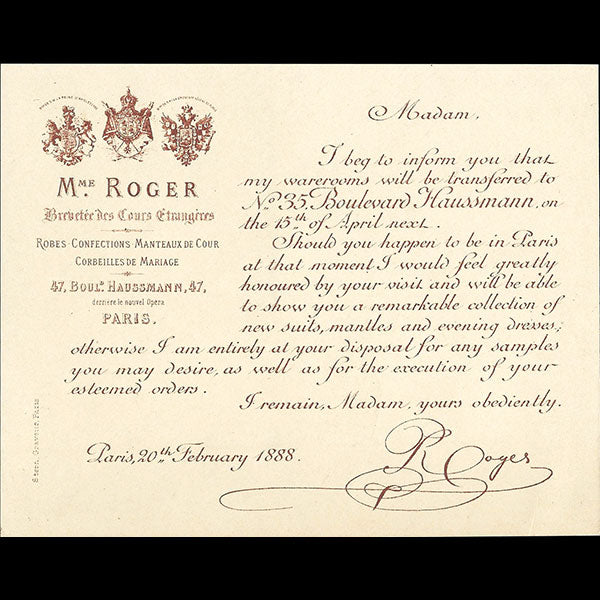 Mᴹᴱ ROGER
Brevetée des Cours Etrangères
ROBES-CONFECTIONS-MANTEAUX DE COUR
CORBEILLES DE MARIAGE
47, BOULᴰ. HAUSSMANN, 47,
derrière le nouvel Opéra
PARIS.
Madam,
I beg to inform you that
my warerooms will be transferred to
Nº 35, Boulevard Haussmann, on
the 15th of April next.
Should you happen to be in Paris
at that moment I would feel greatly
honoured by your visit and will be able
to show you a remarkable collection of
new suits, mantles and evening dresses;
otherwise I am entirely at your disposal for any samples
you may desire, as well as for the execution of your
esteemed orders.
I remain, Madam, yours obediently.
Paris, 20th February 1888.
R Roger
Stern, Graveur, Paris